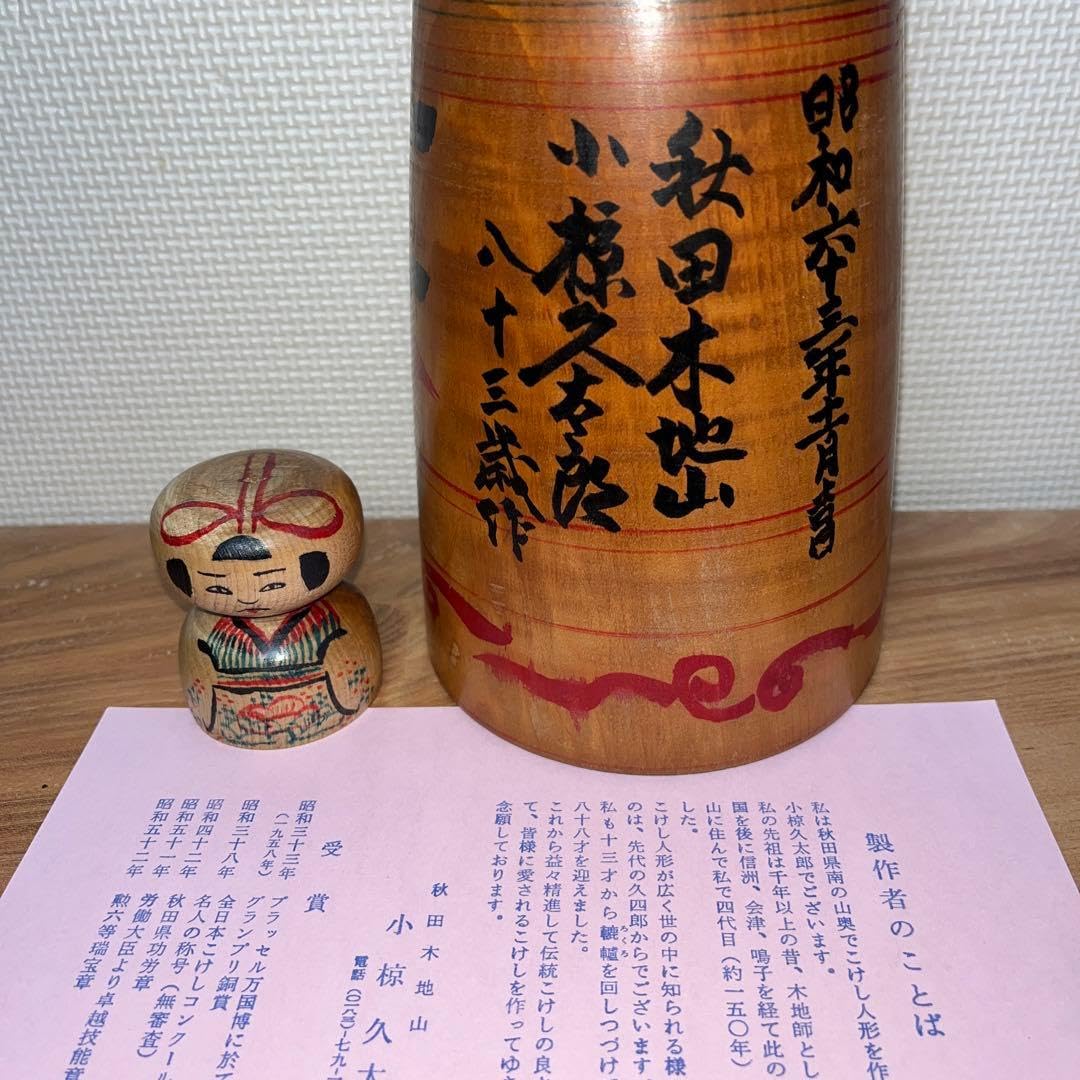 昭和六十三年十一月吉日
秋田木地山
小椋久太郎
八十三歳作
製作者のことば
私は秋田県南の山奥でこけし人形を作
小椋久太郎でございます。
私の先祖は千年以上の昔、木地師とし
国を後に信洲、会津、鳴子を経て此の
山に住んで私で四代目（約一五〇年）
した。
こけし人形が広く世の中に知られる様
のは、先代の久四郎からでございます
私も十三才から轆轤を回しつづけ
ろくろ
八十八才を迎えました。
これから益々精進して伝統こけしの良
て、皆様に愛されるこけしを作ってゆ
念願しております。
秋田木地山
小椋久太
電話（〇一八三）七九-
受賞
昭和三十三年
（一九五八年）
ブラッセル万国博に於て
グランプリ銅賞
昭和三十八年
全日本こけしコンクール
昭和四十二年
名人の称号（無審査）
昭和五十一年
秋田県功労章
昭和五十二年
労働大臣より卓越技能章
勲六等瑞宝章